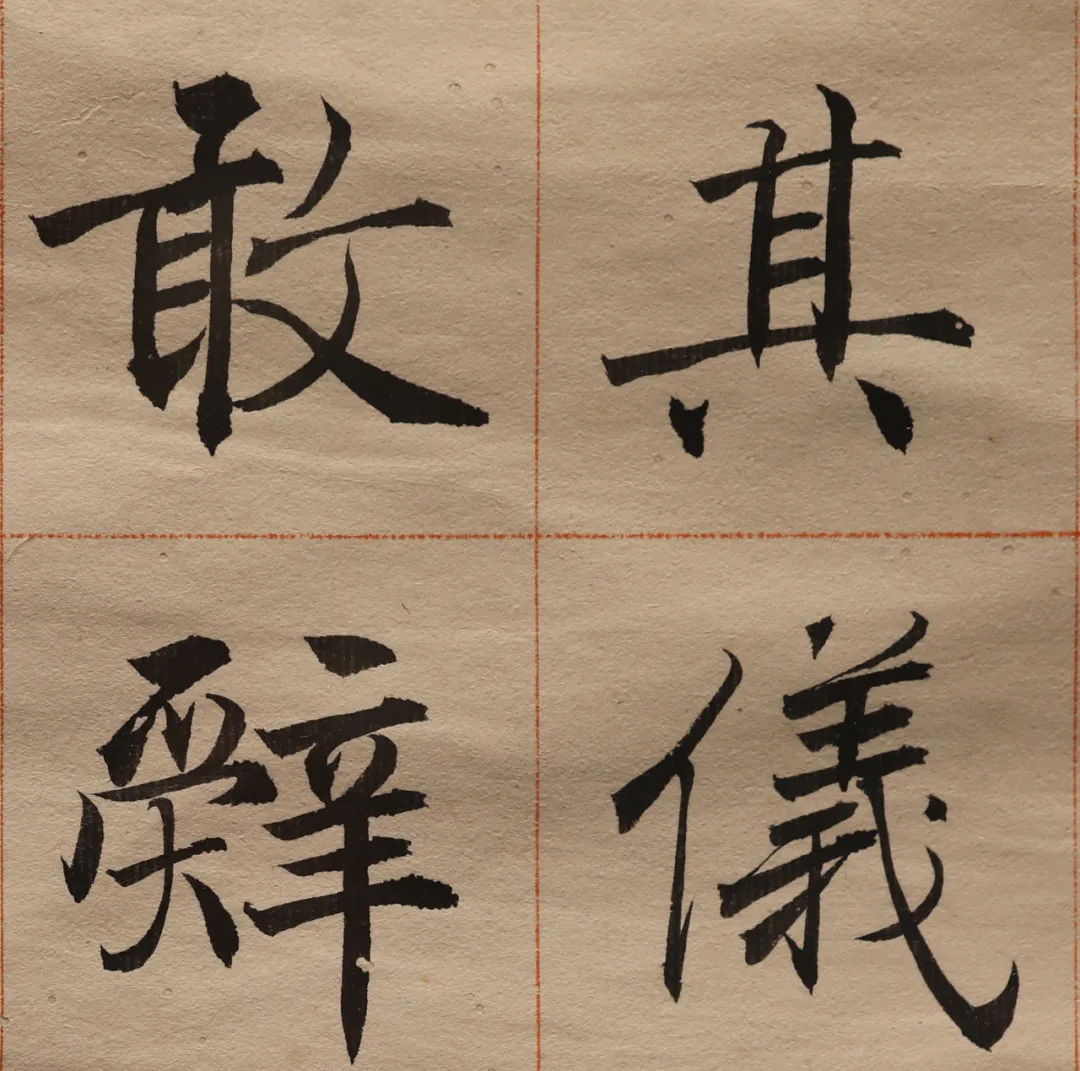 其儀
敢辭